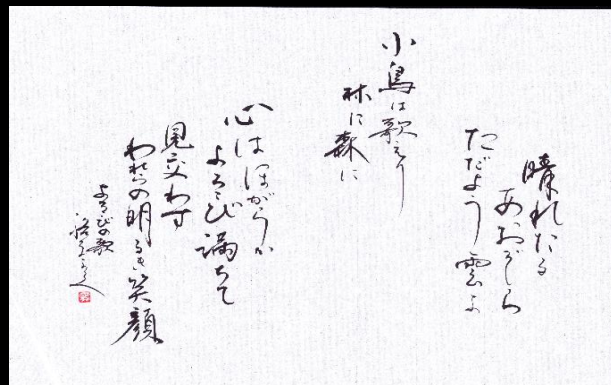 晴れたる
あおぞら
ただよう雲よ
小鳥は歌えり
林に森に
心はほがらか
よろこび満ちて
見交わす
われらの明るき笑顔
よろこびの歌